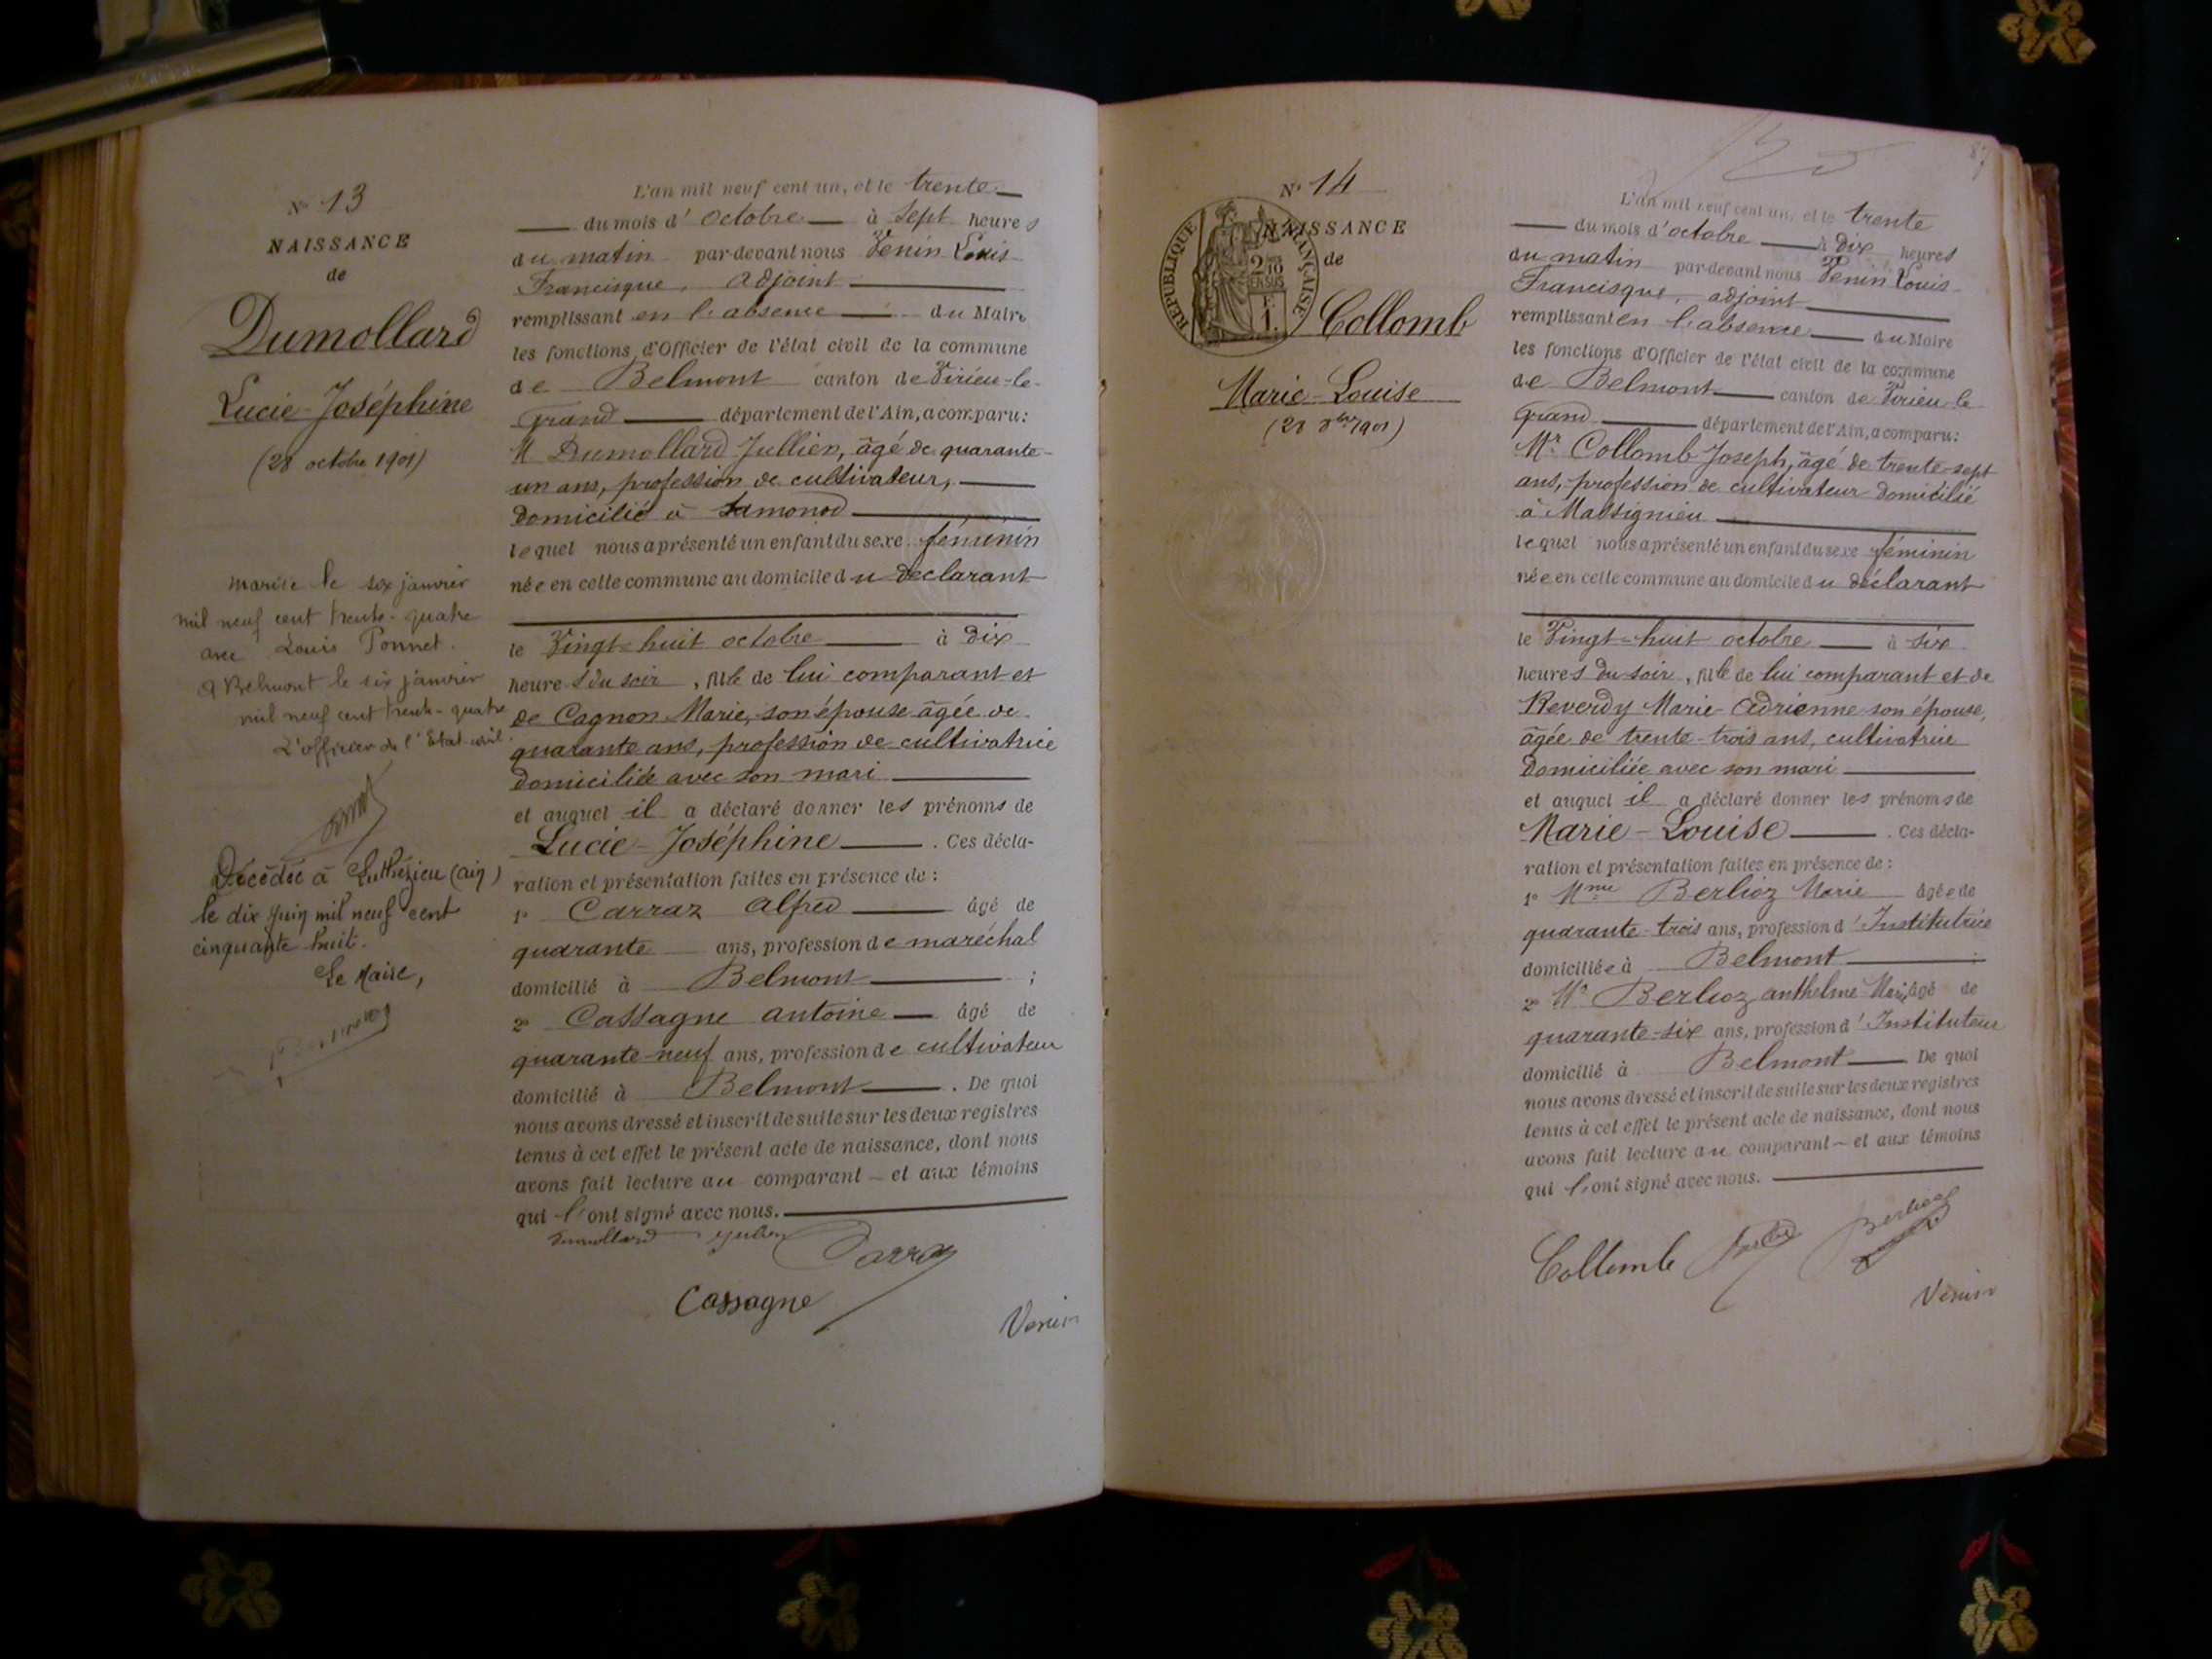 N° 13
NAISSANCE
de
Dumollard
Lucie-Joséphine
(28 octobre 1901)
mariée le six janvier
mil neuf cent trente-quatre
avec Louis Ponnet.
A Belmont le six janvier
mil neuf cent trente-quatre
L'officier de l'Etat-civil.
Décédée à Luthézieu (Ain)
le dix juin mil neuf cent
cinquante huit.
Le Maire,
L'an mil neuf cent un, et le trente
du mois d'octobre à sept heures
du matin par-devant nous Venin Louis-
Francisque, adjoint
remplissant en l'absence du Maire
les fonctions d'Officier de l'état civil de la commune
de Belmont canton de Virieu-le-
Grand département de l'Ain, a comparu:
M Dumollard Jullien, âgé de quarante-
un ans, profession de cultivateur,
domicilié à Samonod
lequel nous a présenté un enfant du sexe féminin
née en cette commune au domicile du declarant
le Vingt-huit octobre à dix
heures du soir, fille de lui comparant et
de Cagnon Marie, son épouse âgée de
quarante ans, profession de cultivatrice
domiciliée avec son mari
et auquel il a déclaré donner les prénoms de
Lucie-Joséphine. Ces décla-
ration et présentation faites en présence de :
1° Carraz Alfred âgé de
quarante ans, profession de maréchal
domicilié à Belmont ;
2° Cassagne Antoine âgé de
quarante-neuf ans, profession de cultivateur
domicilié à Belmont. De quoi
nous avons dressé et inscrit de suite sur les deux registres
tenus à cet effet le présent acte de naissance, dont nous
avons fait lecture au comparant et aux témoins
qui l'ont signé avec nous.
Dumollard Julien Carraz
Cassagne
Venin
87
N° 14
NAISSANCE
de
REPUBLIQUE FRANÇAISE
2/10 EN SUS
F. 1.
Collomb
Marie-Louise
(28 8bre 1901)
L'an mil neuf cent un, et le trente
du mois d'octobre à dix heures
du matin par-devant nous Venin Louis-
Francisque, adjoint
remplissant en l'absence du Maire
les fonctions d'Officier de l'état civil de la commune
de Belmont canton de Virieu-le-
Grand département de l'Ain, a comparu:
Mr Collomb Joseph, âgé de trente-sept
ans, profession de cultivateur domicilié
à Massignieu
lequel nous a présenté un enfant du sexe féminin
née en cette commune au domicile du déclarant
le Vingt-huit octobre à six
heures du soir, fille de lui comparant et de
Reverdy Marie-Adrienne son épouse,
âgée de trente-trois ans, cultivatrice
domiciliée avec son mari
et auquel il a déclaré donner les prénoms de
Marie-Louise. Ces décla-
ration et présentation faites en présence de :
1° Mme Berlioz Marie âgée de
quarante-trois ans, profession d'Institutrice
domiciliée à Belmont
2° Mr Berlioz Anthelme Marie âgé de
quarante-six ans, profession d'Instituteur
domicilié à Belmont De quoi
nous avons dressé et inscrit de suite sur les deux registres
tenus à cet effet le présent acte de naissance, dont nous
avons fait lecture au comparant et aux témoins
qui l'ont signé avec nous.
Collomb Berlioz
Venin